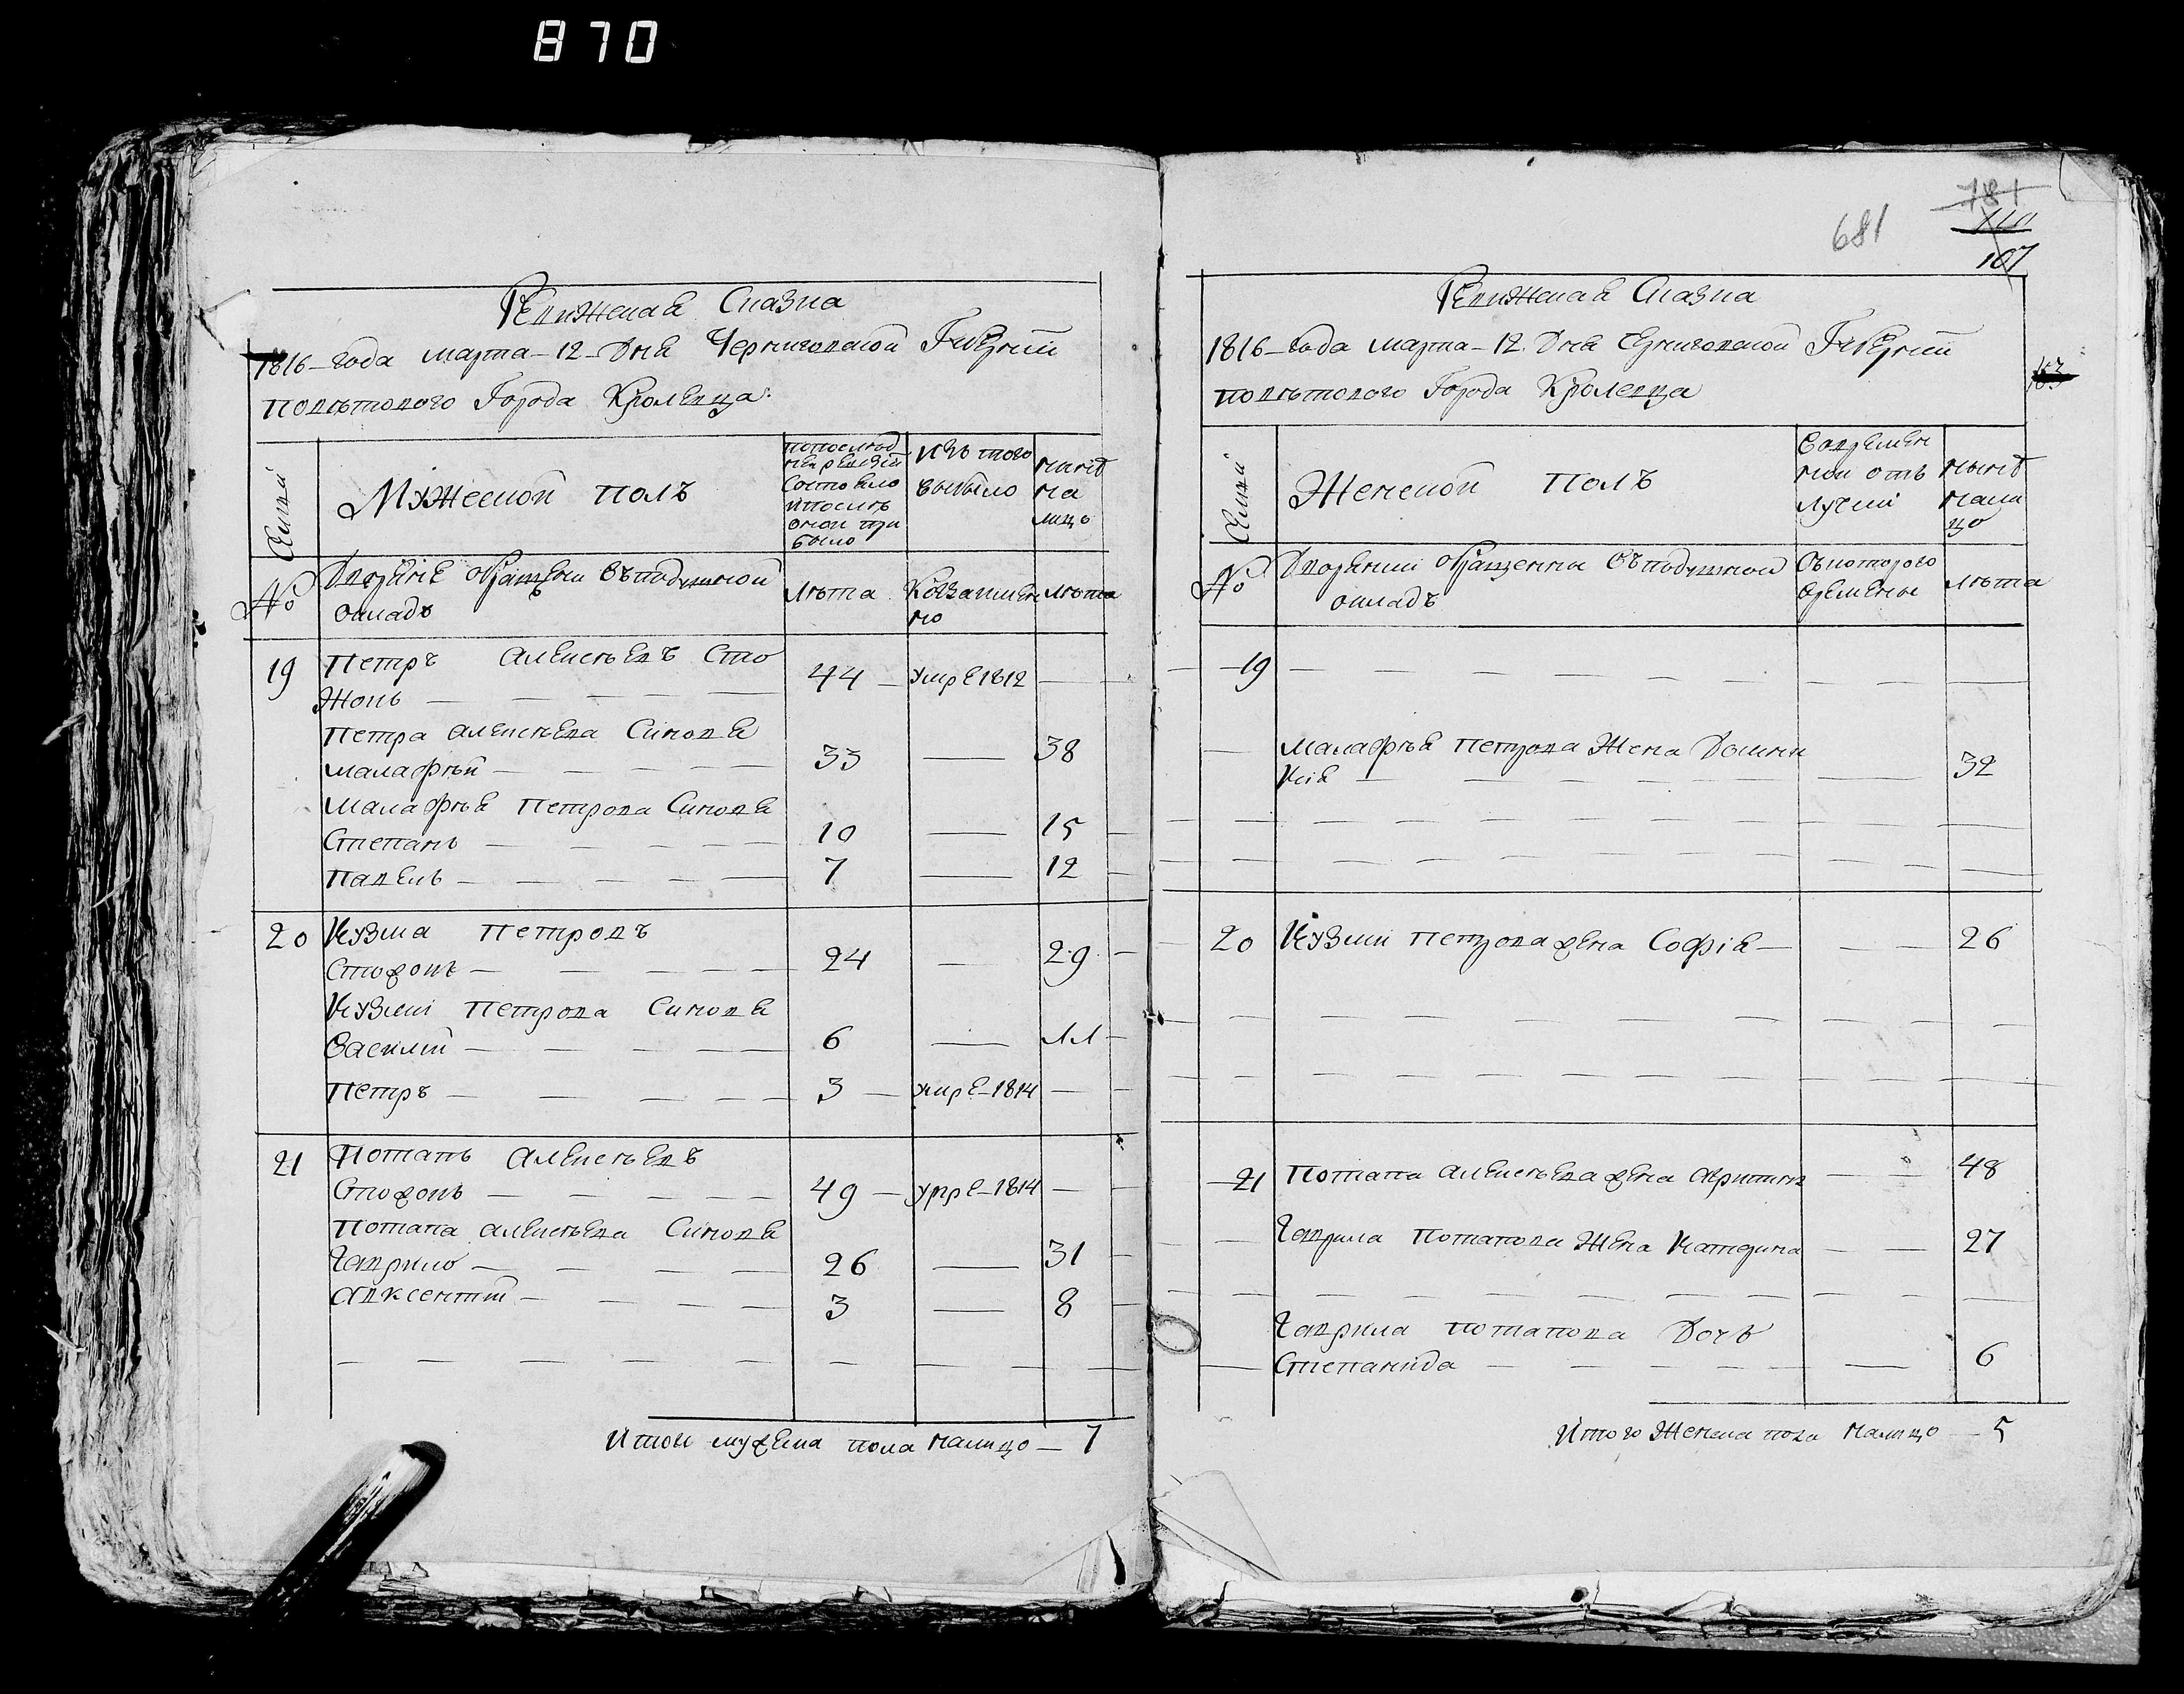 870
Ревижская Сказка
1816-года марта-12-Дня Черниговской Губернии
поветового Города Кролевца:
Семьи
Мужеской полъ
попослед
ней ревизіи
состояло
ипосле
оной при
было
Изъ того
выбыло
ныне
на
лицо
№
Дворяне обращени въподушной
окладъ
лета
Когдаимен
но
лета
19
Петръ Алексеевъ Сто
44
умре 1812
жокъ
Петра Алексеева Синовя
Малафей
33
38
Малафея Петрова Синовя
Степанъ
10
15
Павелъ
7
12
20
Кузма Петровъ
Стожокъ
24
29
Кузми Петрова Синовя
Василий
6
11
Петръ
3
умре-1814
21
Потапъ Алексеевъ
Стожокъ
49
умре-1814
Потапа Алексеева Синовя
Гаврило
26
31
Авксентий
3
8
Итого мужеска пола налицо-7
681
781
107
Ревижская Сказка
1816-года марта-12 Дня Черниговской Губернии
поветового Города Кролевца
163
Семьи
Женской полъ
Вовремен
ной отъ
лучки
ныне
нали
цо
№
Дворянии обращенни въподушной
окладъ
Съкоторого
времены
лета
19
Малафея Петрова Жена Домни
кия
32
20
Кузми Петрова жена Софія
26
21
Потапа Алексеева жена
48
Гаврила Потапова Жена Катерина
27
Гаврила Потапова Дочь
Степанида
6
Итого Женска пола налицо-5